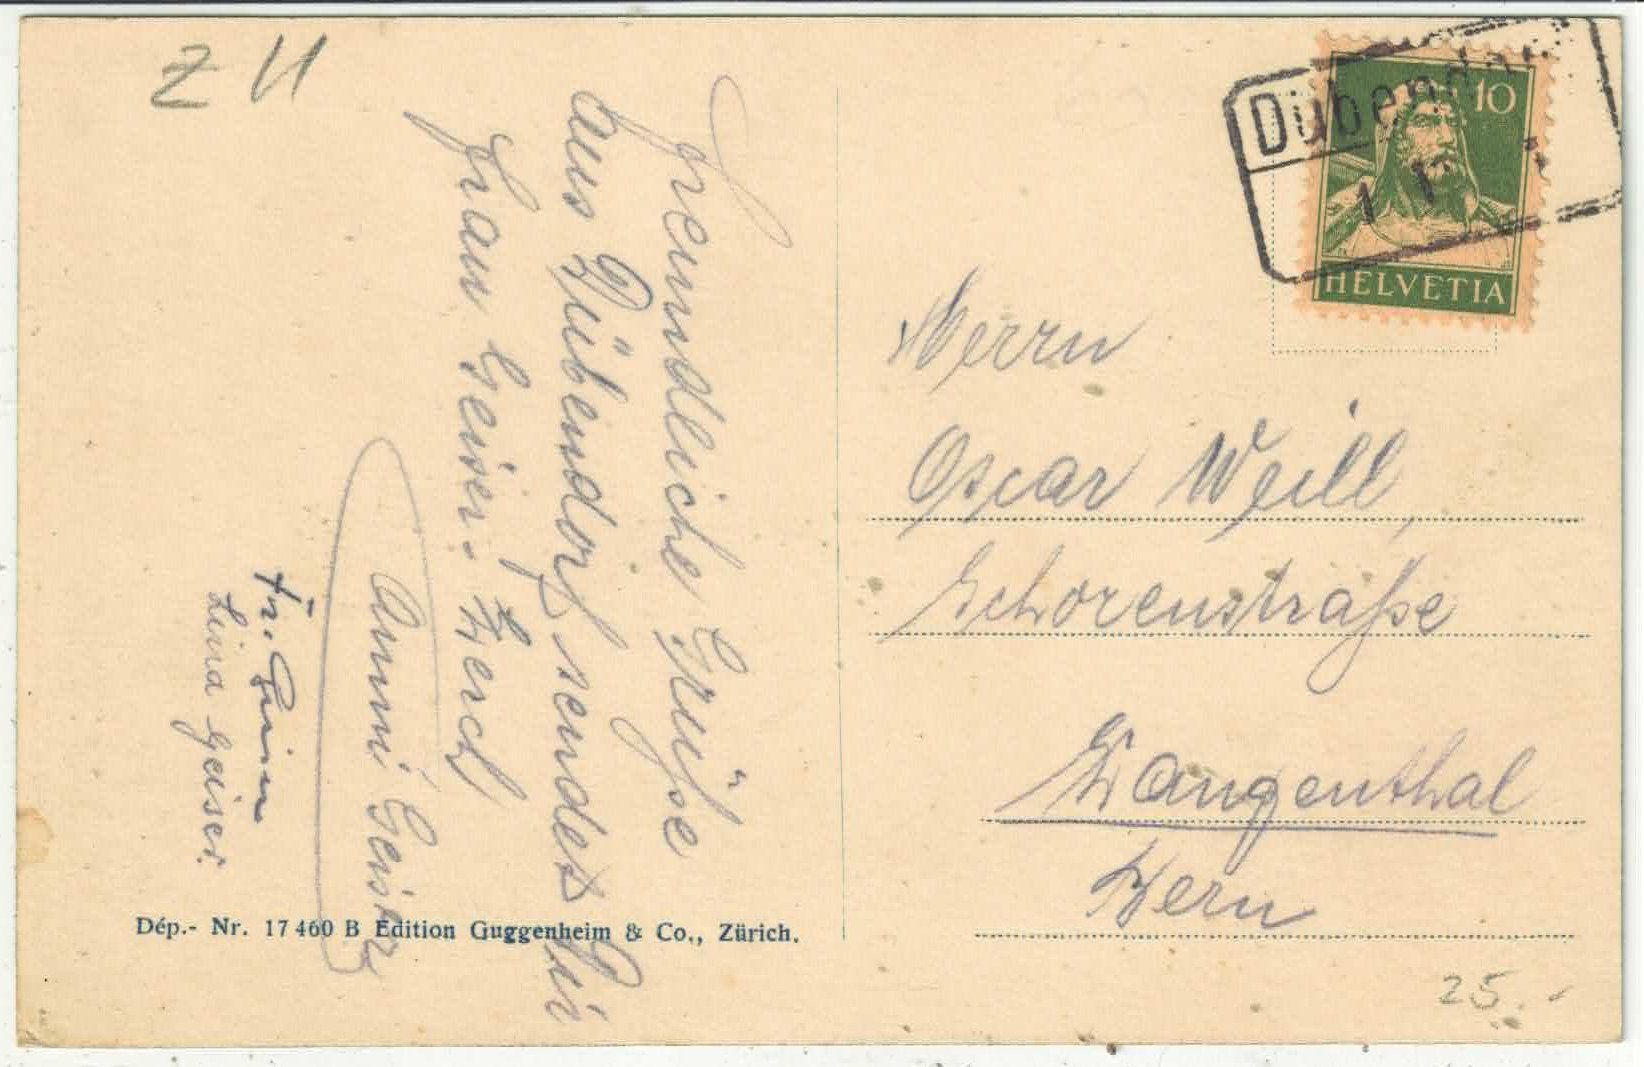 Z H
Freundliche Grüße
aus Dübendorf sendet Dir
Frau Geiser.
Anni Geiser
Fr.
Lina Geiser.
Dép.- Nr. 17460 B Edition Guggenheim & Co., Zürich.
Dübendorf
10
HELVETIA
Herrn
Oscar Weill
Schorenstraße
Langenthal
Bern
25.-